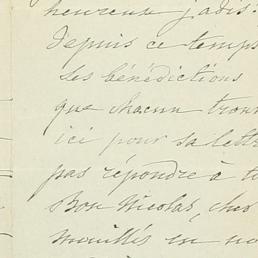 heureux jadis.
depuis ce temps
Les bénédictions
que chacun trouv
ici pour sa lettr
pas répondre à t
Bon Nicolas, cher
mouillés en no